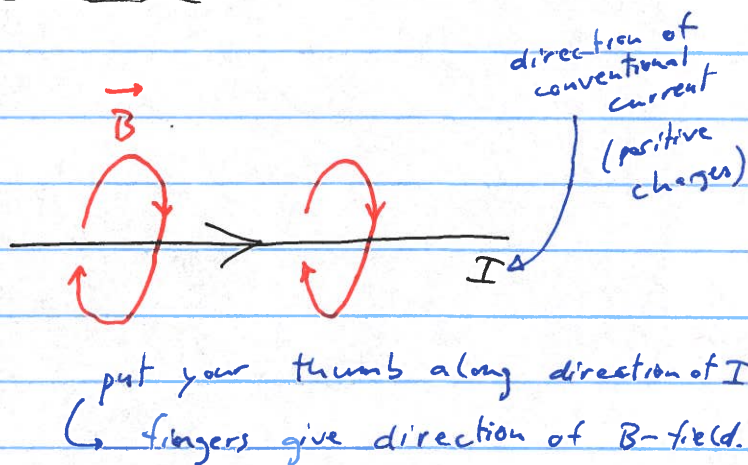 direction of
conventional
current
(positive
charges)
B
I
put your thumb along direction of I
fingers give direction of B-field.